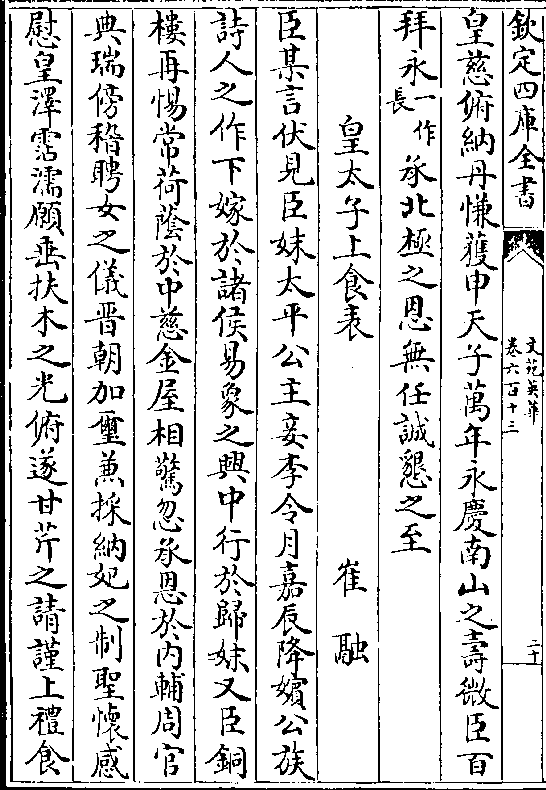 欽定四庫全書
文苑英華
卷六百十三
二十
皇慈俯納丹慊獲申天子萬年永慶南山之壽微臣百
拜永一作長承北極之恩無任誠懇之至
皇太子上食表 崔融
臣某言伏見臣妹太平公主妾李令月嘉辰降嬪公族
詩人之作下嫁於諸侯易象之興中行於歸妹又臣銅
樓再惕常荷蔭於中慈金屋相驚忽承恩於內輔周官
典瑞傍稽聘女之儀晉朝加璽兼採納妃之制聖懷感
慰皇澤霑濡願垂扶木之光俯遂甘芹之請謹上禮食